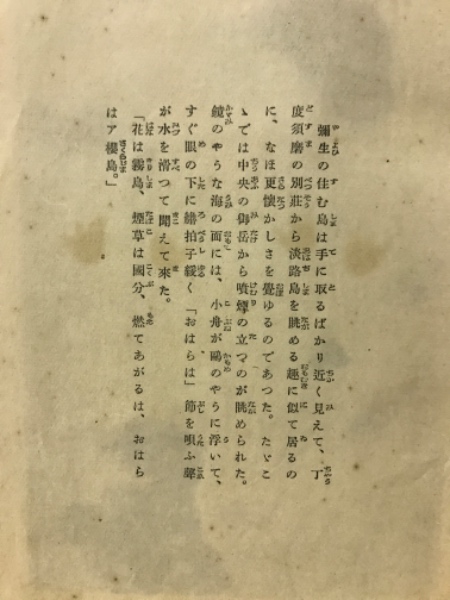 彌生の住む島は手に取るばかり近く見えて、丁
度須磨の別莊から淡路島を眺める趣に似て居るの
に、なほ更懷かしさを覺ゆるのであつた。たゞこ
ゝでは中央の御岳から噴煙の立つのが眺められた。
鏡のやうな海の面には、小舟が鷗のやうに浮いて、
すぐ眼の下に緋拍子緩く「おはらは」節を唄ふ聲
が水を滑つて聞えて來た。
「花は霧島、煙草は國分、燃てあがるは、おはら
はア櫻島。」